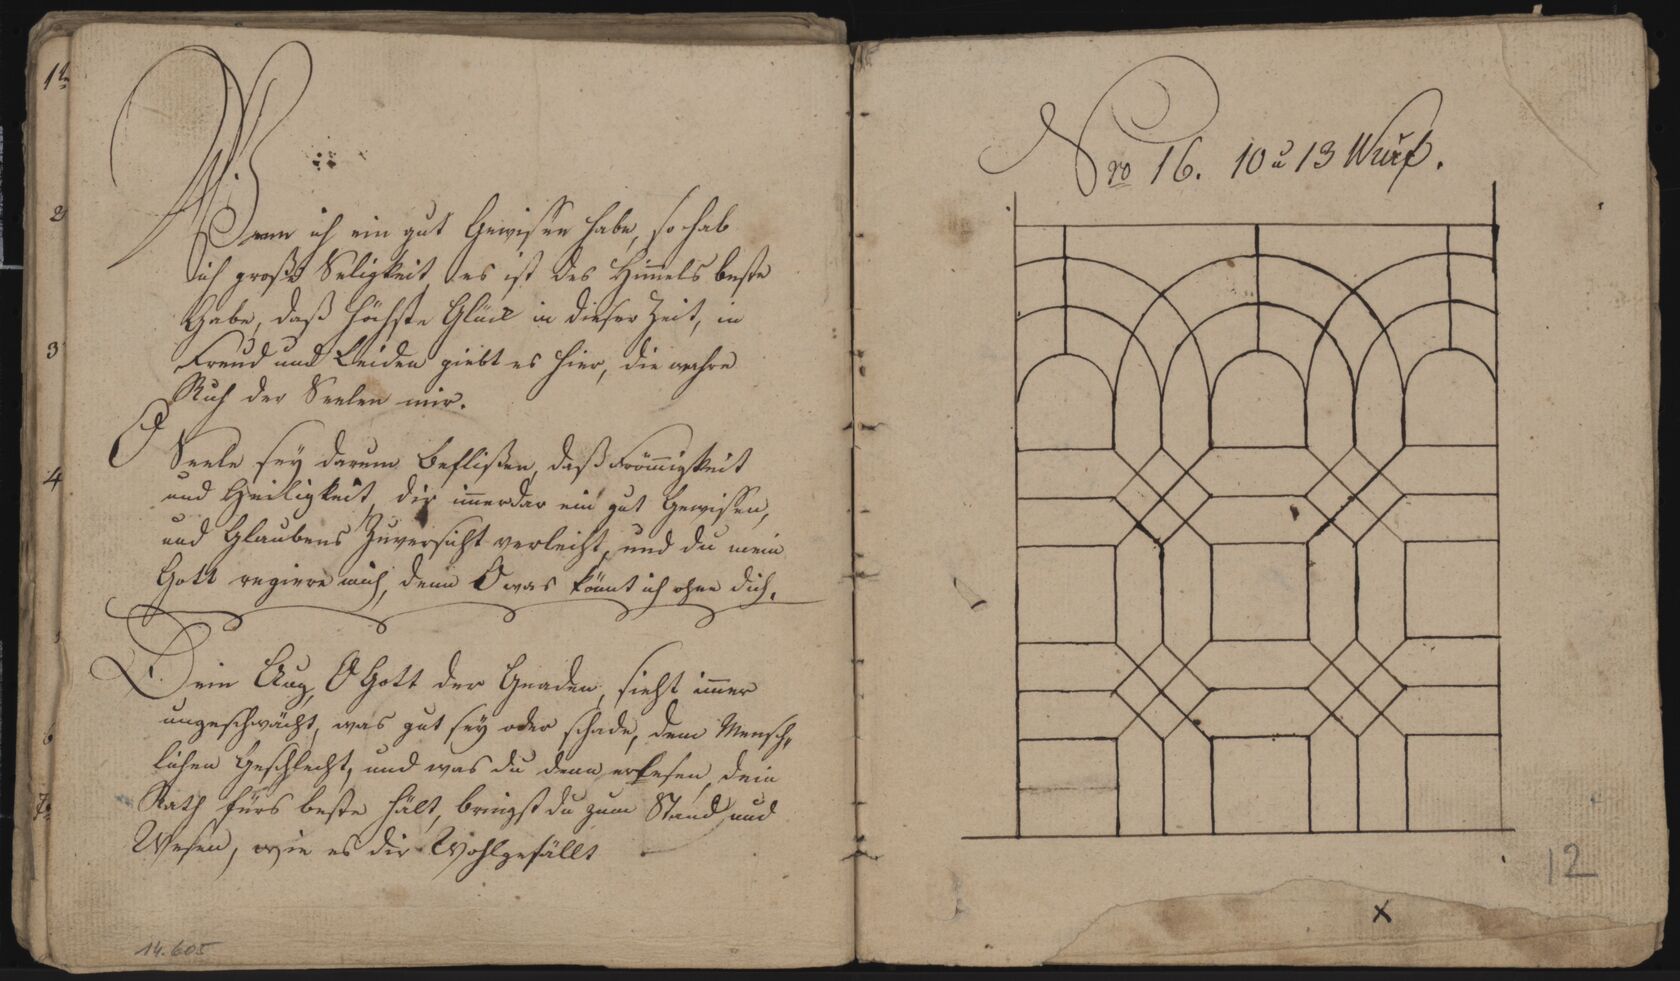 1tn
2
3
4
6
7tn
Wenn ich ein gut Gewissen habe, so hab
ich große Seligkeit, es ist des Himmels beste
Gabe, daß höchste Glück in dieser Zeit, in
Freud und Leiden giebt es hier, die wahre
Ruh der Seelen mir.
O Seele sey darum beflißen, daß Frömmigkeit
und Heiligkeit, dir immerdar ein gut Gewissen,
und Glaubens Zuversicht verleiht, und du mein
Gott regiere mich, denn O was könnt ich ohne dich.
Dein Aug, O Gott der Gnaden, sieht immer
ungeschwächt, was gut sey oder schade, dem Mensch,
lichen Geschlecht, und was du denn erlesen, dein
Rath fürs beste hält, bringst du zum Stand und
Wesen, wie es dir Wohlgefällt
14.605
Nro 16. 10 u 13 Wurf.
12
x